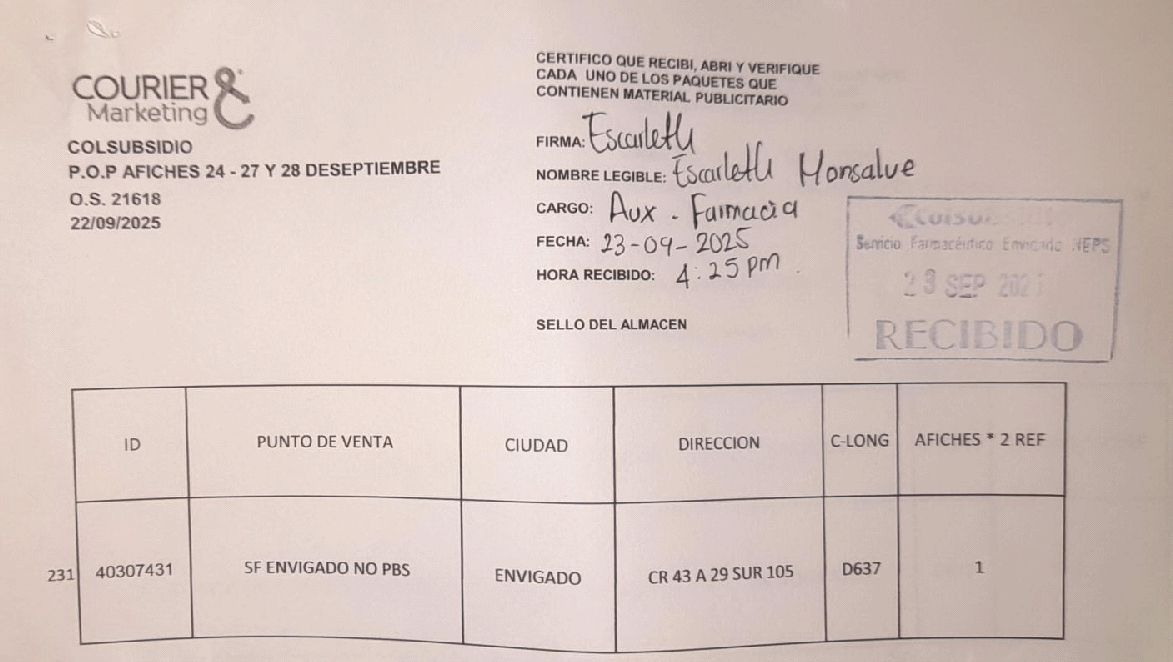 COURIER &
Marketing
COLSUBSIDIO
P.O.P AFICHES 24 - 27 Y 28 DESEPTIEMBRE
O.S. 21618
22/09/2025
CERTIFICO QUE RECIBI, ABRI Y VERIFIQUE
CADA UNO DE LOS PAQUETES QUE
CONTIENEN MATERIAL PUBLICITARIO
FIRMA: Escarleth
NOMBRE LEGIBLE: Escarleth Monsalve
CARGO: Aux. Farmacia
FECHA: 23-09-2025
HORA RECIBIDO: 4:25 pm.
SELLO DEL ALMACEN
Servicio Farmacéutico Envigado NEPS
23 SEP
RECIBIDO
ID PUNTO DE VENTA CIUDAD DIRECCION C-LONG AFICHES * 2 REF
231 40307431 SF ENVIGADO NO PBS ENVIGADO CR 43 A 29 SUR 105 D637 1